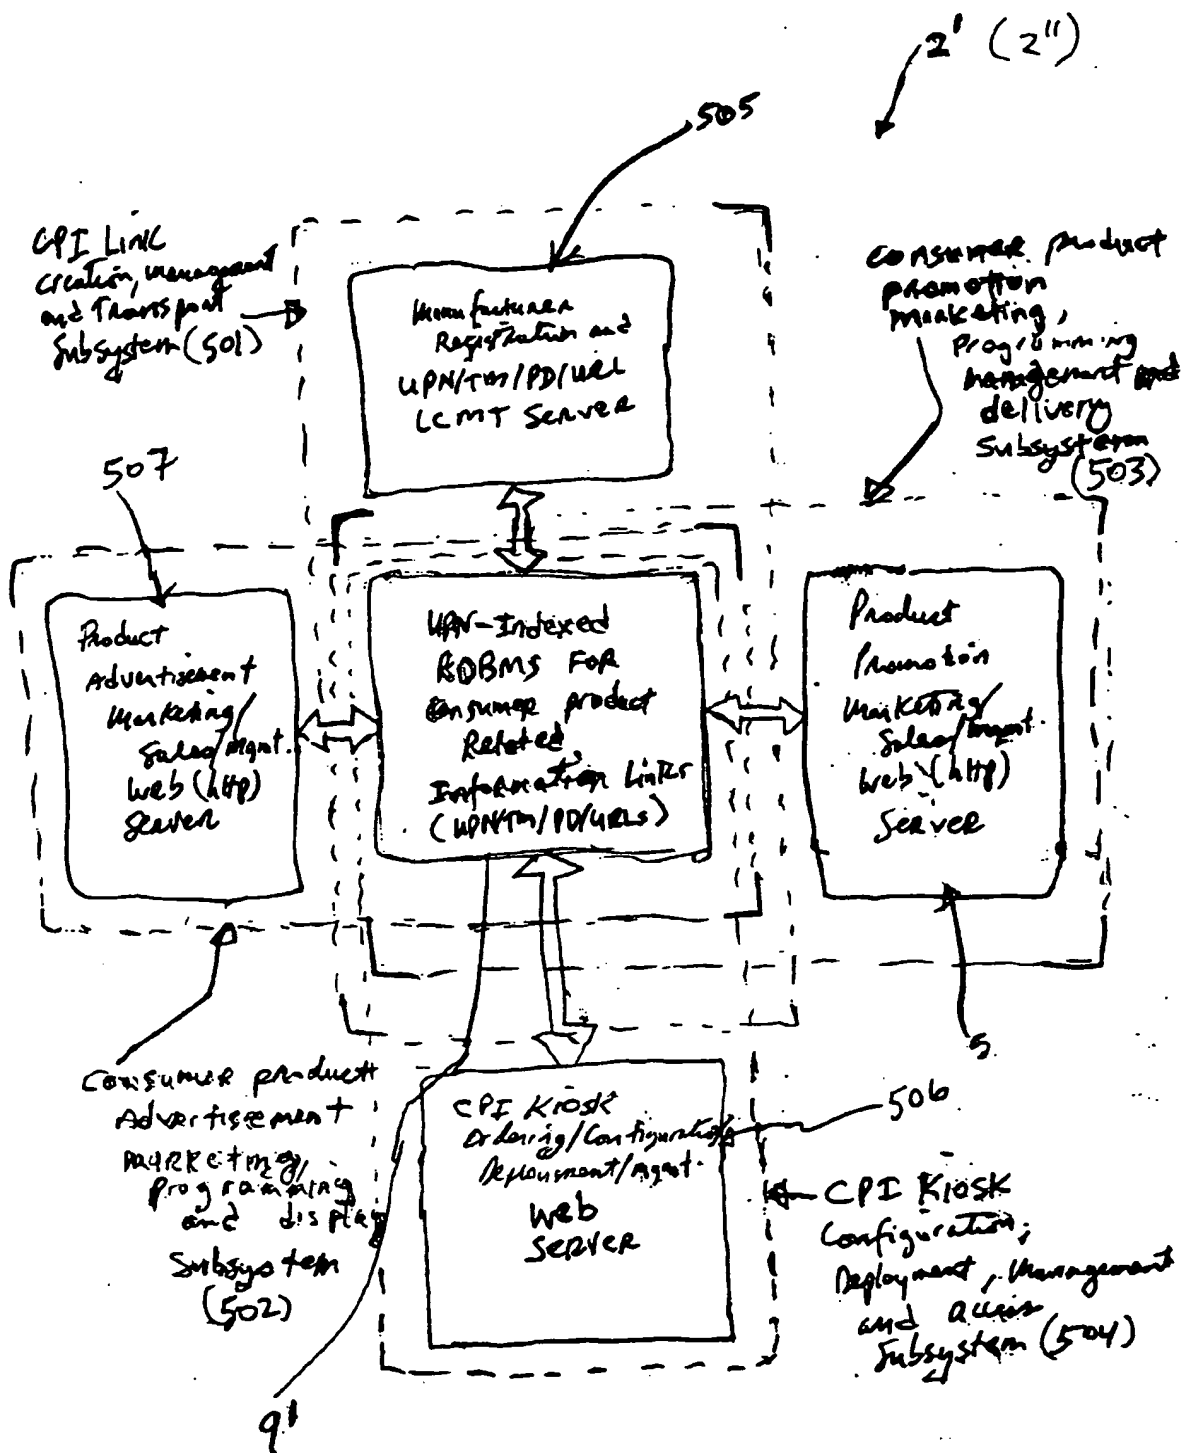 2' (2")
505
CPI LINK
Creation, management
and Transport
Subsystem (501)
Manufacturer
Registration and
UPN/TM/PD/URL
LCMT SERVER
Consumer product
promotion
marketing,
Programming
management and
delivery
Subsystem
(503)
507
Product
Advertisement
Marketing/
Sales/Mgmt.
Web (http)
Server
UPN-Indexed
RDBMS FOR
Consumer product
Related
Information Links
(UPN/TM/PD/URLs)
Product
Promotion
Marketing/
Sales/Mgmt.
Web (http)
Server
5
Consumer product
Advertisement
Marketing,
programming
and display
Subsystem
(502)
CPI Kiosk
Ordering/Configuration
Deployment/Mgmt.
Web
SERVER
506
CPI Kiosk
Configuration,
Deployment, Management
and Access
Subsystem (504)
9'